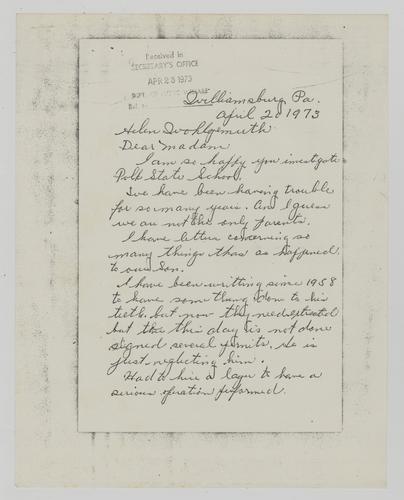 Received in
SECRETARY'S OFFICE
APR 23 1973
Williamsburg, Pa.
April 20 1973
Helen Wohlgemuth
Dear Madam
I am so happy you investigate
Polk State School.
We have been having trouble
for so many years. And I guess
we are not the only parents.
I have letters concerning so
many things thas as happened
to our Son.
I have been writting since 1958
to have som thing don to his
teeth. but now they need
but tha this day is not done
signed several permits. He is
just neglecting him.
Had to hire a layer to have a
serious operation performed.